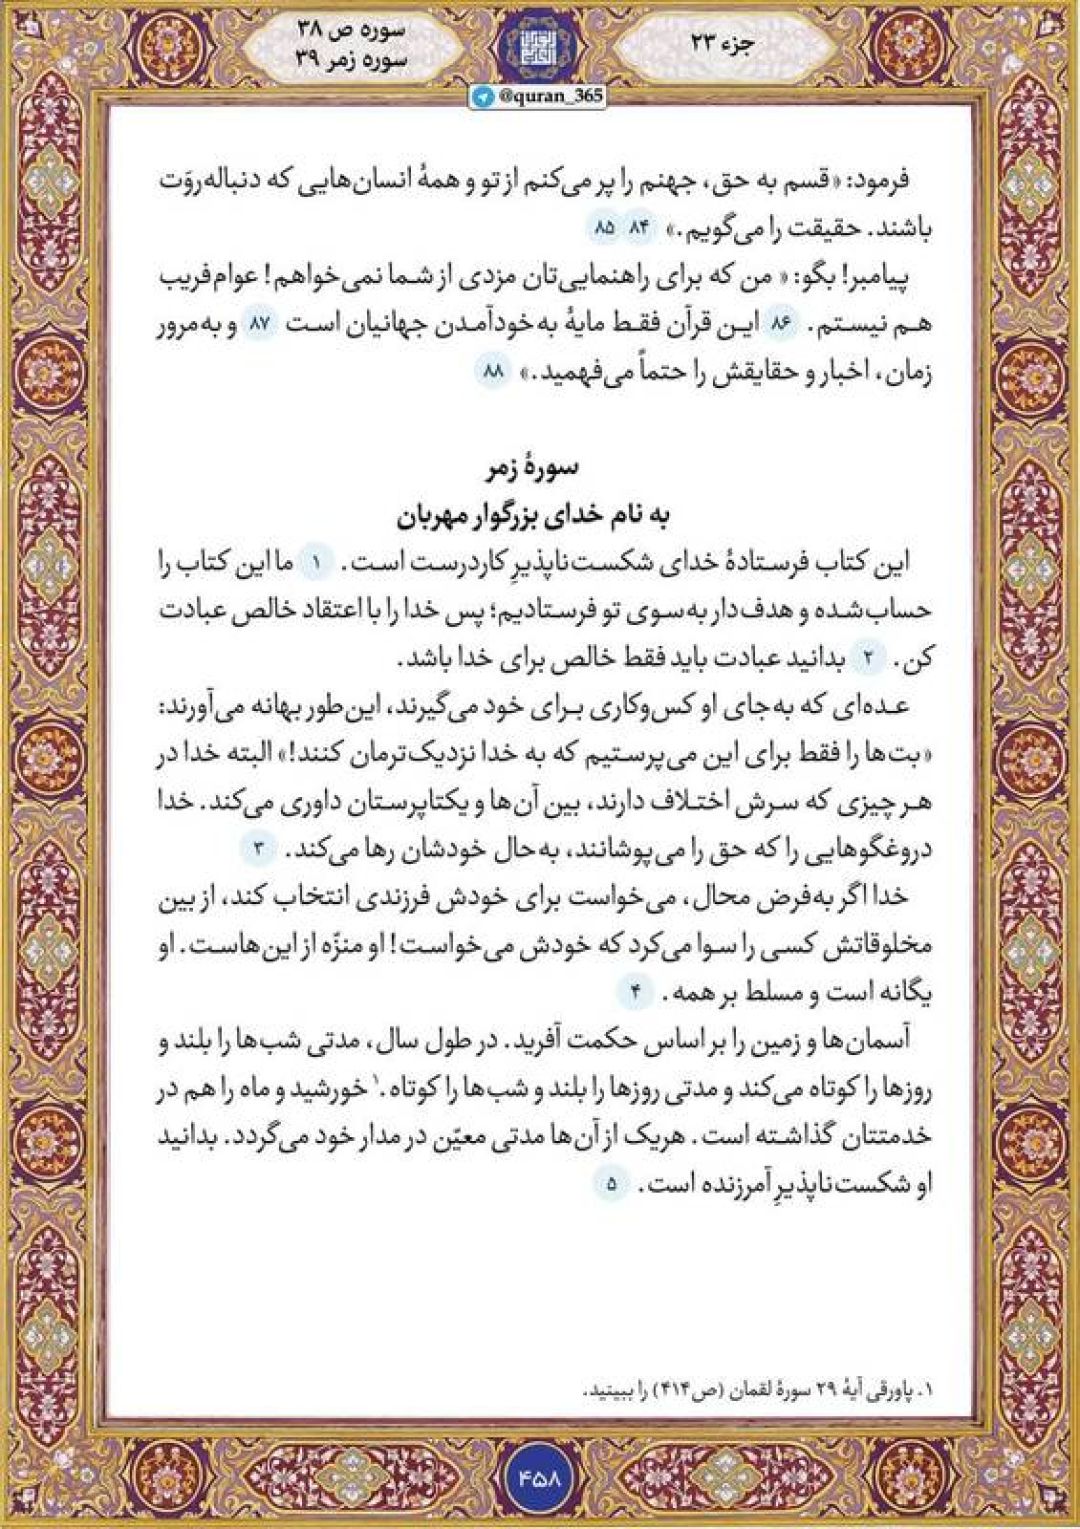 جزء ۲۳
سوره ص ۳۸
سوره زمر ۳۹
@quran_365
فرمود: «قسم به حق، جهنم را پر می‌کنم از تو و همهٔ انسان‌هایی که دنباله‌روَت
باشند. حقیقت را می‌گویم.» ۸۴ ۸۵
پیامبر! بگو: «من که برای راهنمایی‌تان مزدی از شما نمی‌خواهم! عوام‌فریب
هم نیستم. ۸۶ این قرآن فقط مایهٔ به‌خودآمدن جهانیان است ۸۷ و به‌مرور
زمان، اخبار و حقایقش را حتماً می‌فهمید.» ۸۸
سورهٔ زمر
به نام خدای بزرگوار مهربان
این کتاب فرستادهٔ خدای شکست‌ناپذیرِ کاردرست است. ۱ ما این کتاب را
حساب‌شده و هدف‌دار به‌سوی تو فرستادیم؛ پس خدا را با اعتقاد خالص عبادت
کن. ۲ بدانید عبادت باید فقط خالص برای خدا باشد.
عده‌ای که به‌جای او کس‌وکاری برای خود می‌گیرند، این‌طور بهانه می‌آورند:
«بت‌ها را فقط برای این می‌پرستیم که به خدا نزدیک‌ترمان کنند!» البته خدا در
هر چیزی که سرش اختلاف دارند، بین آن‌ها و یکتاپرستان داوری می‌کند. خدا
دروغگوهایی را که حق را می‌پوشانند، به‌حال خودشان رها می‌کند. ۳
خدا اگر به‌فرض محال، می‌خواست برای خودش فرزندی انتخاب کند، از بین
مخلوقاتش کسی را سوا می‌کرد که خودش می‌خواست! او منزّه از این‌هاست. او
یگانه است و مسلط بر همه. ۴
آسمان‌ها و زمین را بر اساس حکمت آفرید. در طول سال، مدتی شب‌ها را بلند و
روزها را کوتاه می‌کند و مدتی روزها را بلند و شب‌ها را کوتاه.۱ خورشید و ماه را هم در
خدمتتان گذاشته است. هریک از آن‌ها مدتی معیّن در مدار خود می‌گردد. بدانید
او شکست‌ناپذیرِ آمرزنده است. ۵
۱. پاورقی آیهٔ ۲۹ سورهٔ لقمان (ص۴۱۴) را ببینید.
۴۵۸